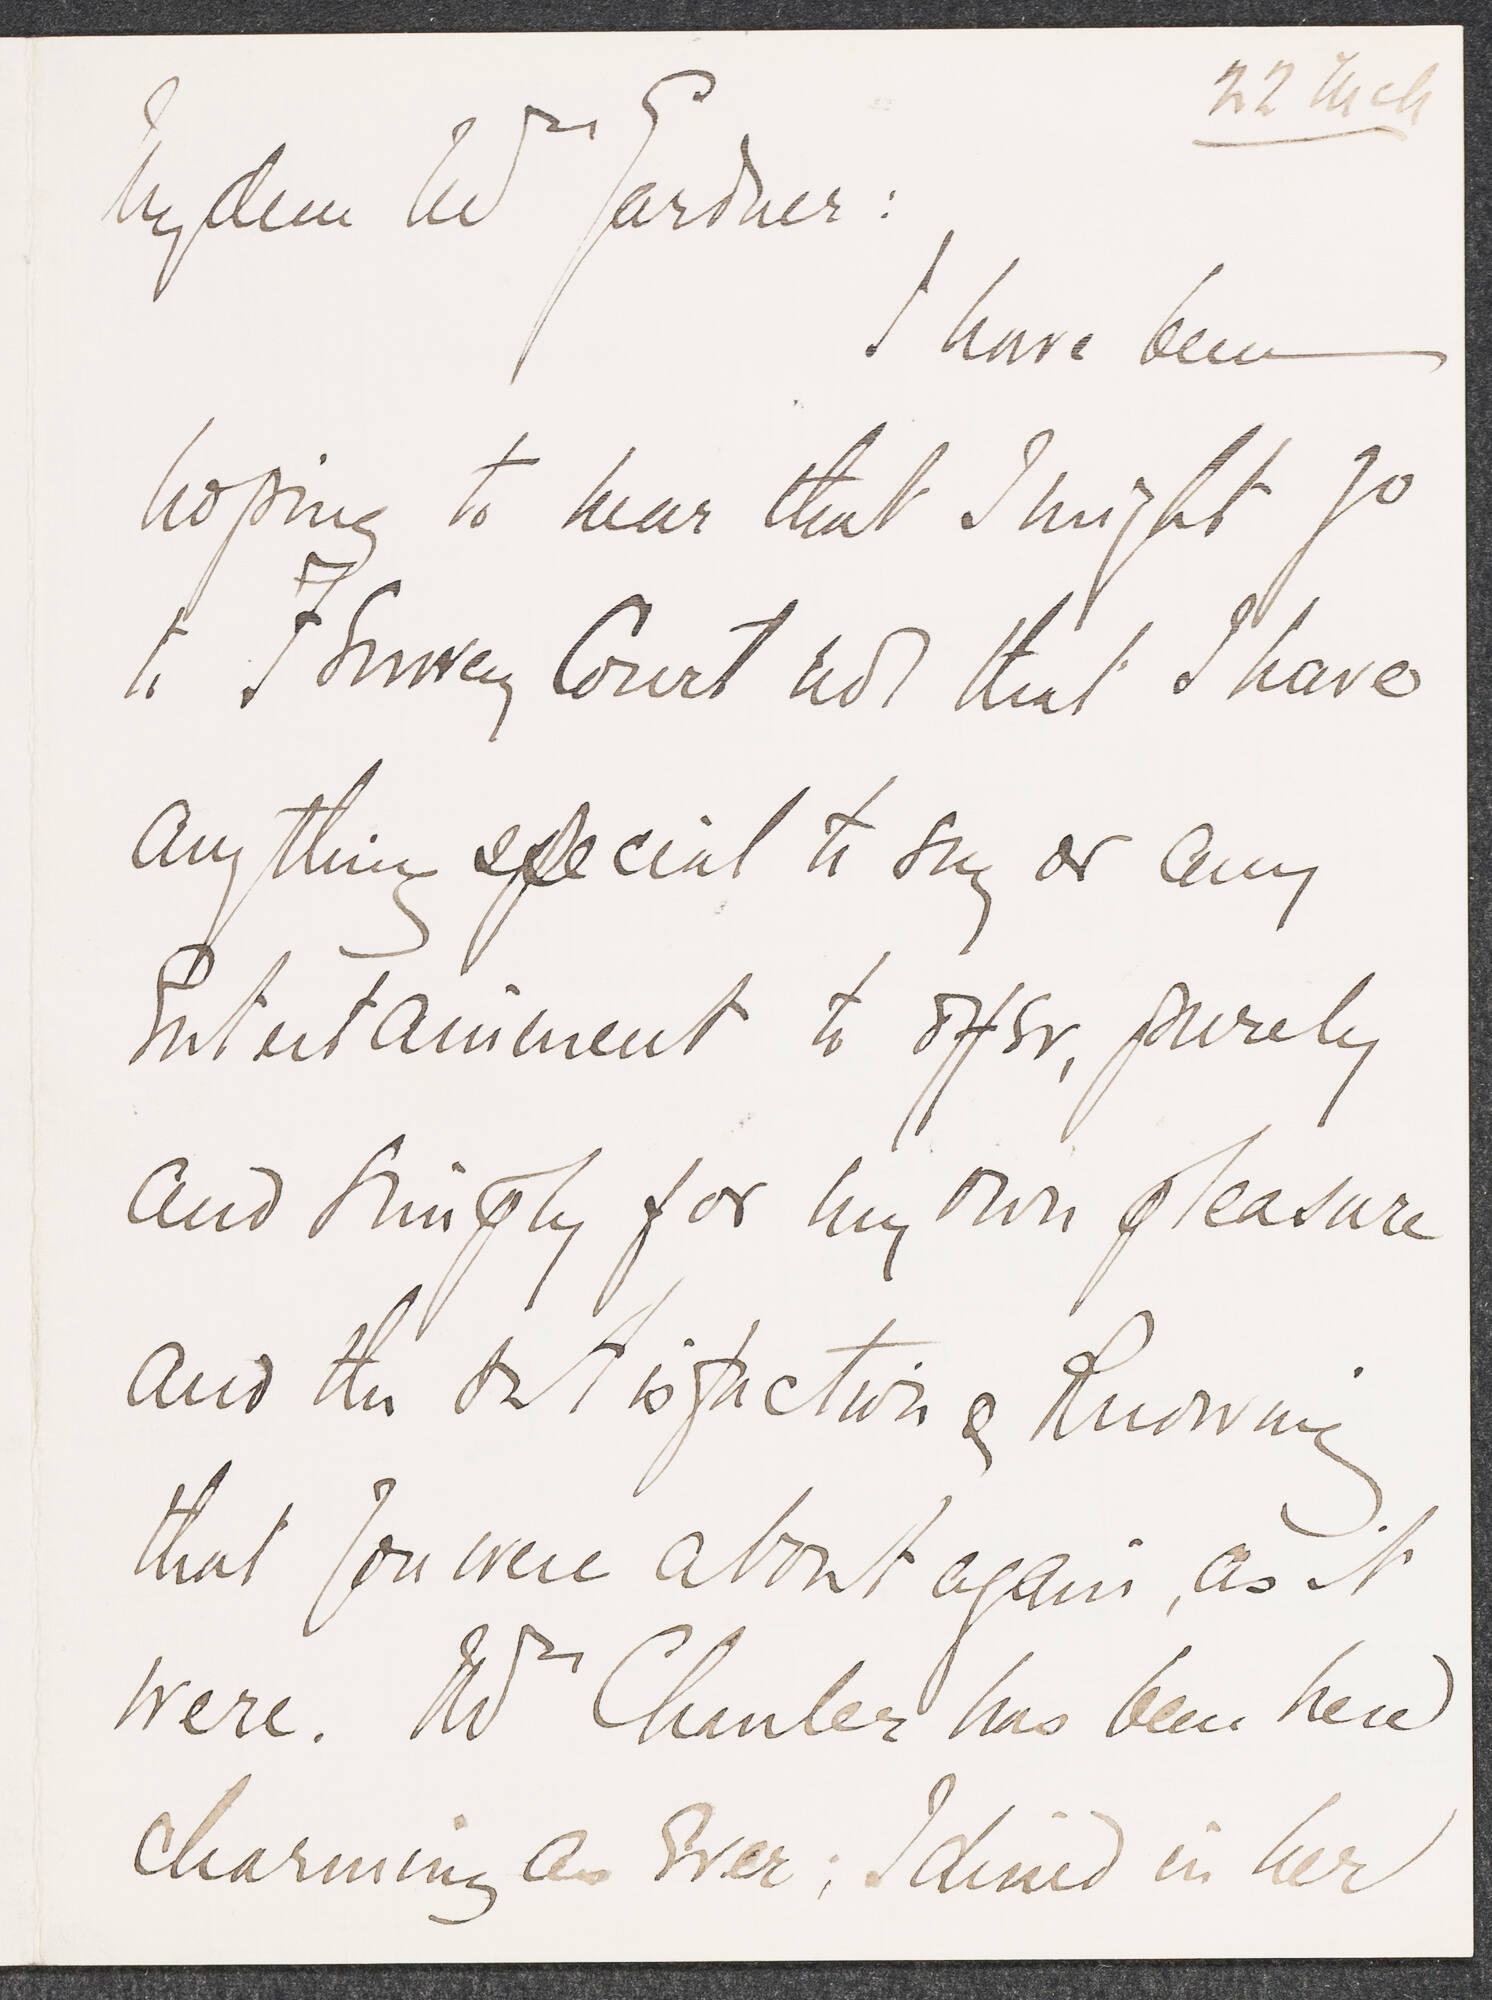 22 Mch
My dear Mrs Gardner:
I have been
hoping to hear that I might go
to Fenway Court not that I have
anything special to say or any
Entertainment to offer, purely
and simply for my own pleasure
and the satisfaction of Knowing
that you were about again, as it
were. Mrs Chanler has been here
charming as Ever; I dined in her